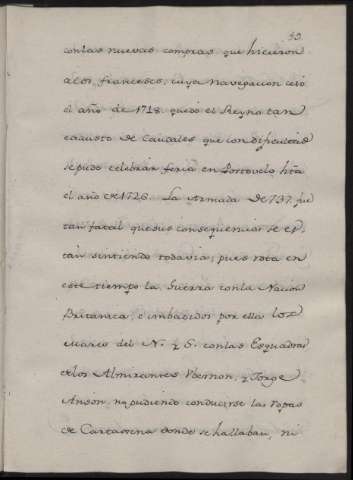 53.
con las nuevas compras que hicieron
a los franceses, cuya navegacion cesó
el año de 1718. quedó el Reyno tan
exausto de Caudales que con dificultad
se pudo celebrar feria en Portovelo hta
el año de 1726. La Armada de 737. fue
tan fatal que sus consequencias se es-
tan sintiendo todavia; pues rota en
este tiempo la Guerra con la Nacion
Britanica, e imbadidos por ella los
Mares del N. y S. con las Esquadras
de los Almirantes Vernon, y Jorge
Anson, no pudiendo conducirse las ropas
de Cartagena donde se hallaban, ni